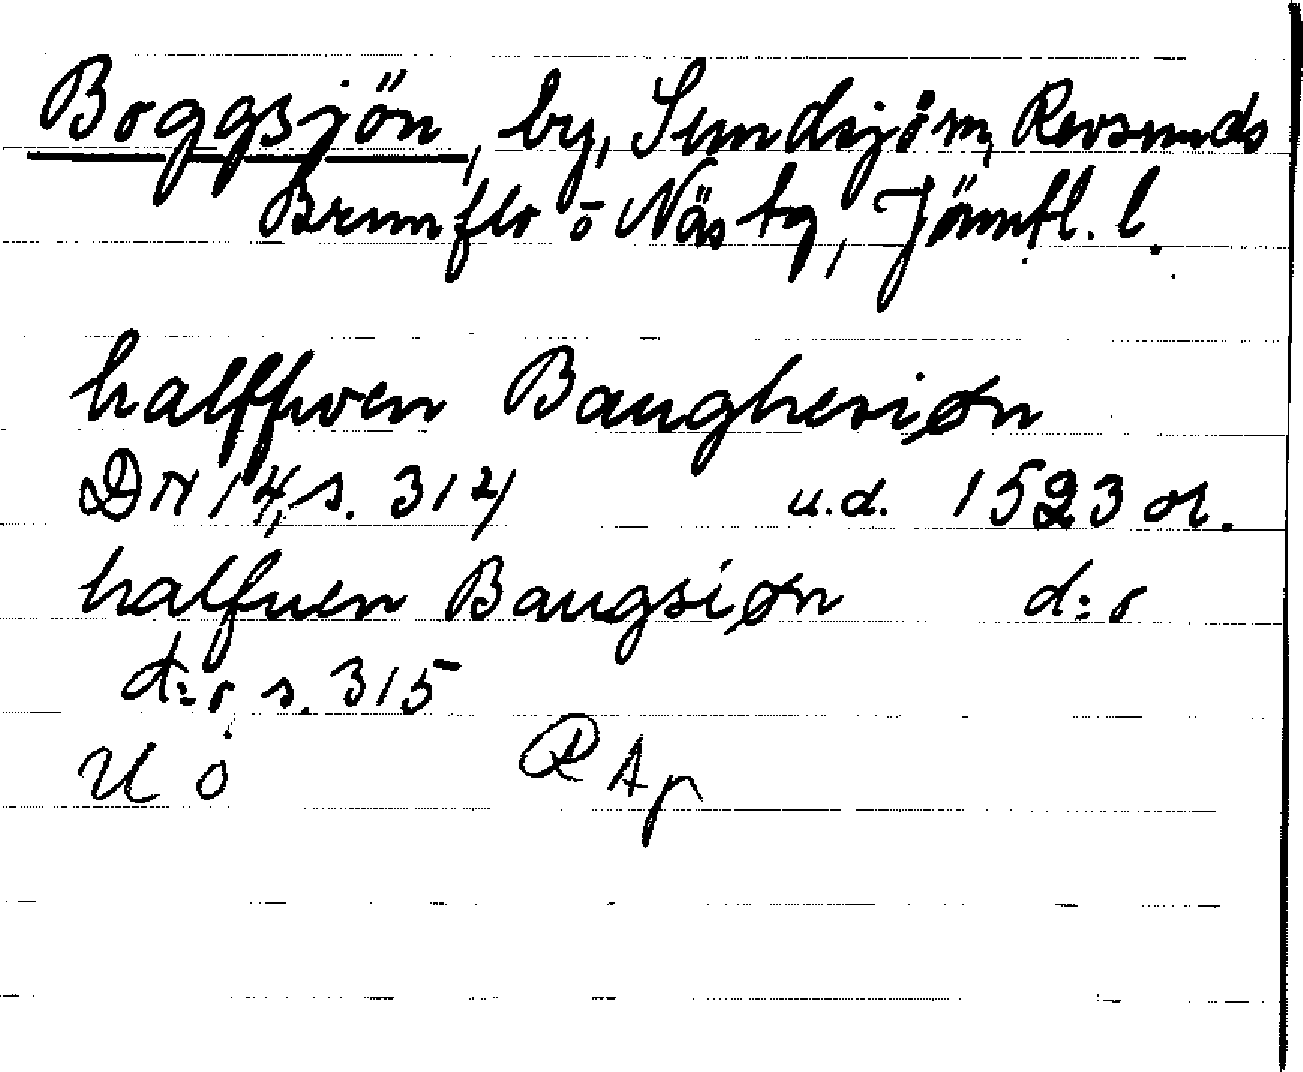 Boggsjön, by, Sundsjö sn, Revsunds
Brunflo o Näs tg, Jämtl. l.
halffwen Baughesiøn
DN 14, s. 314 u.d. 1523 or.
halfuen Baugsiøn d:o
d:o, s. 315
U Ö RAp